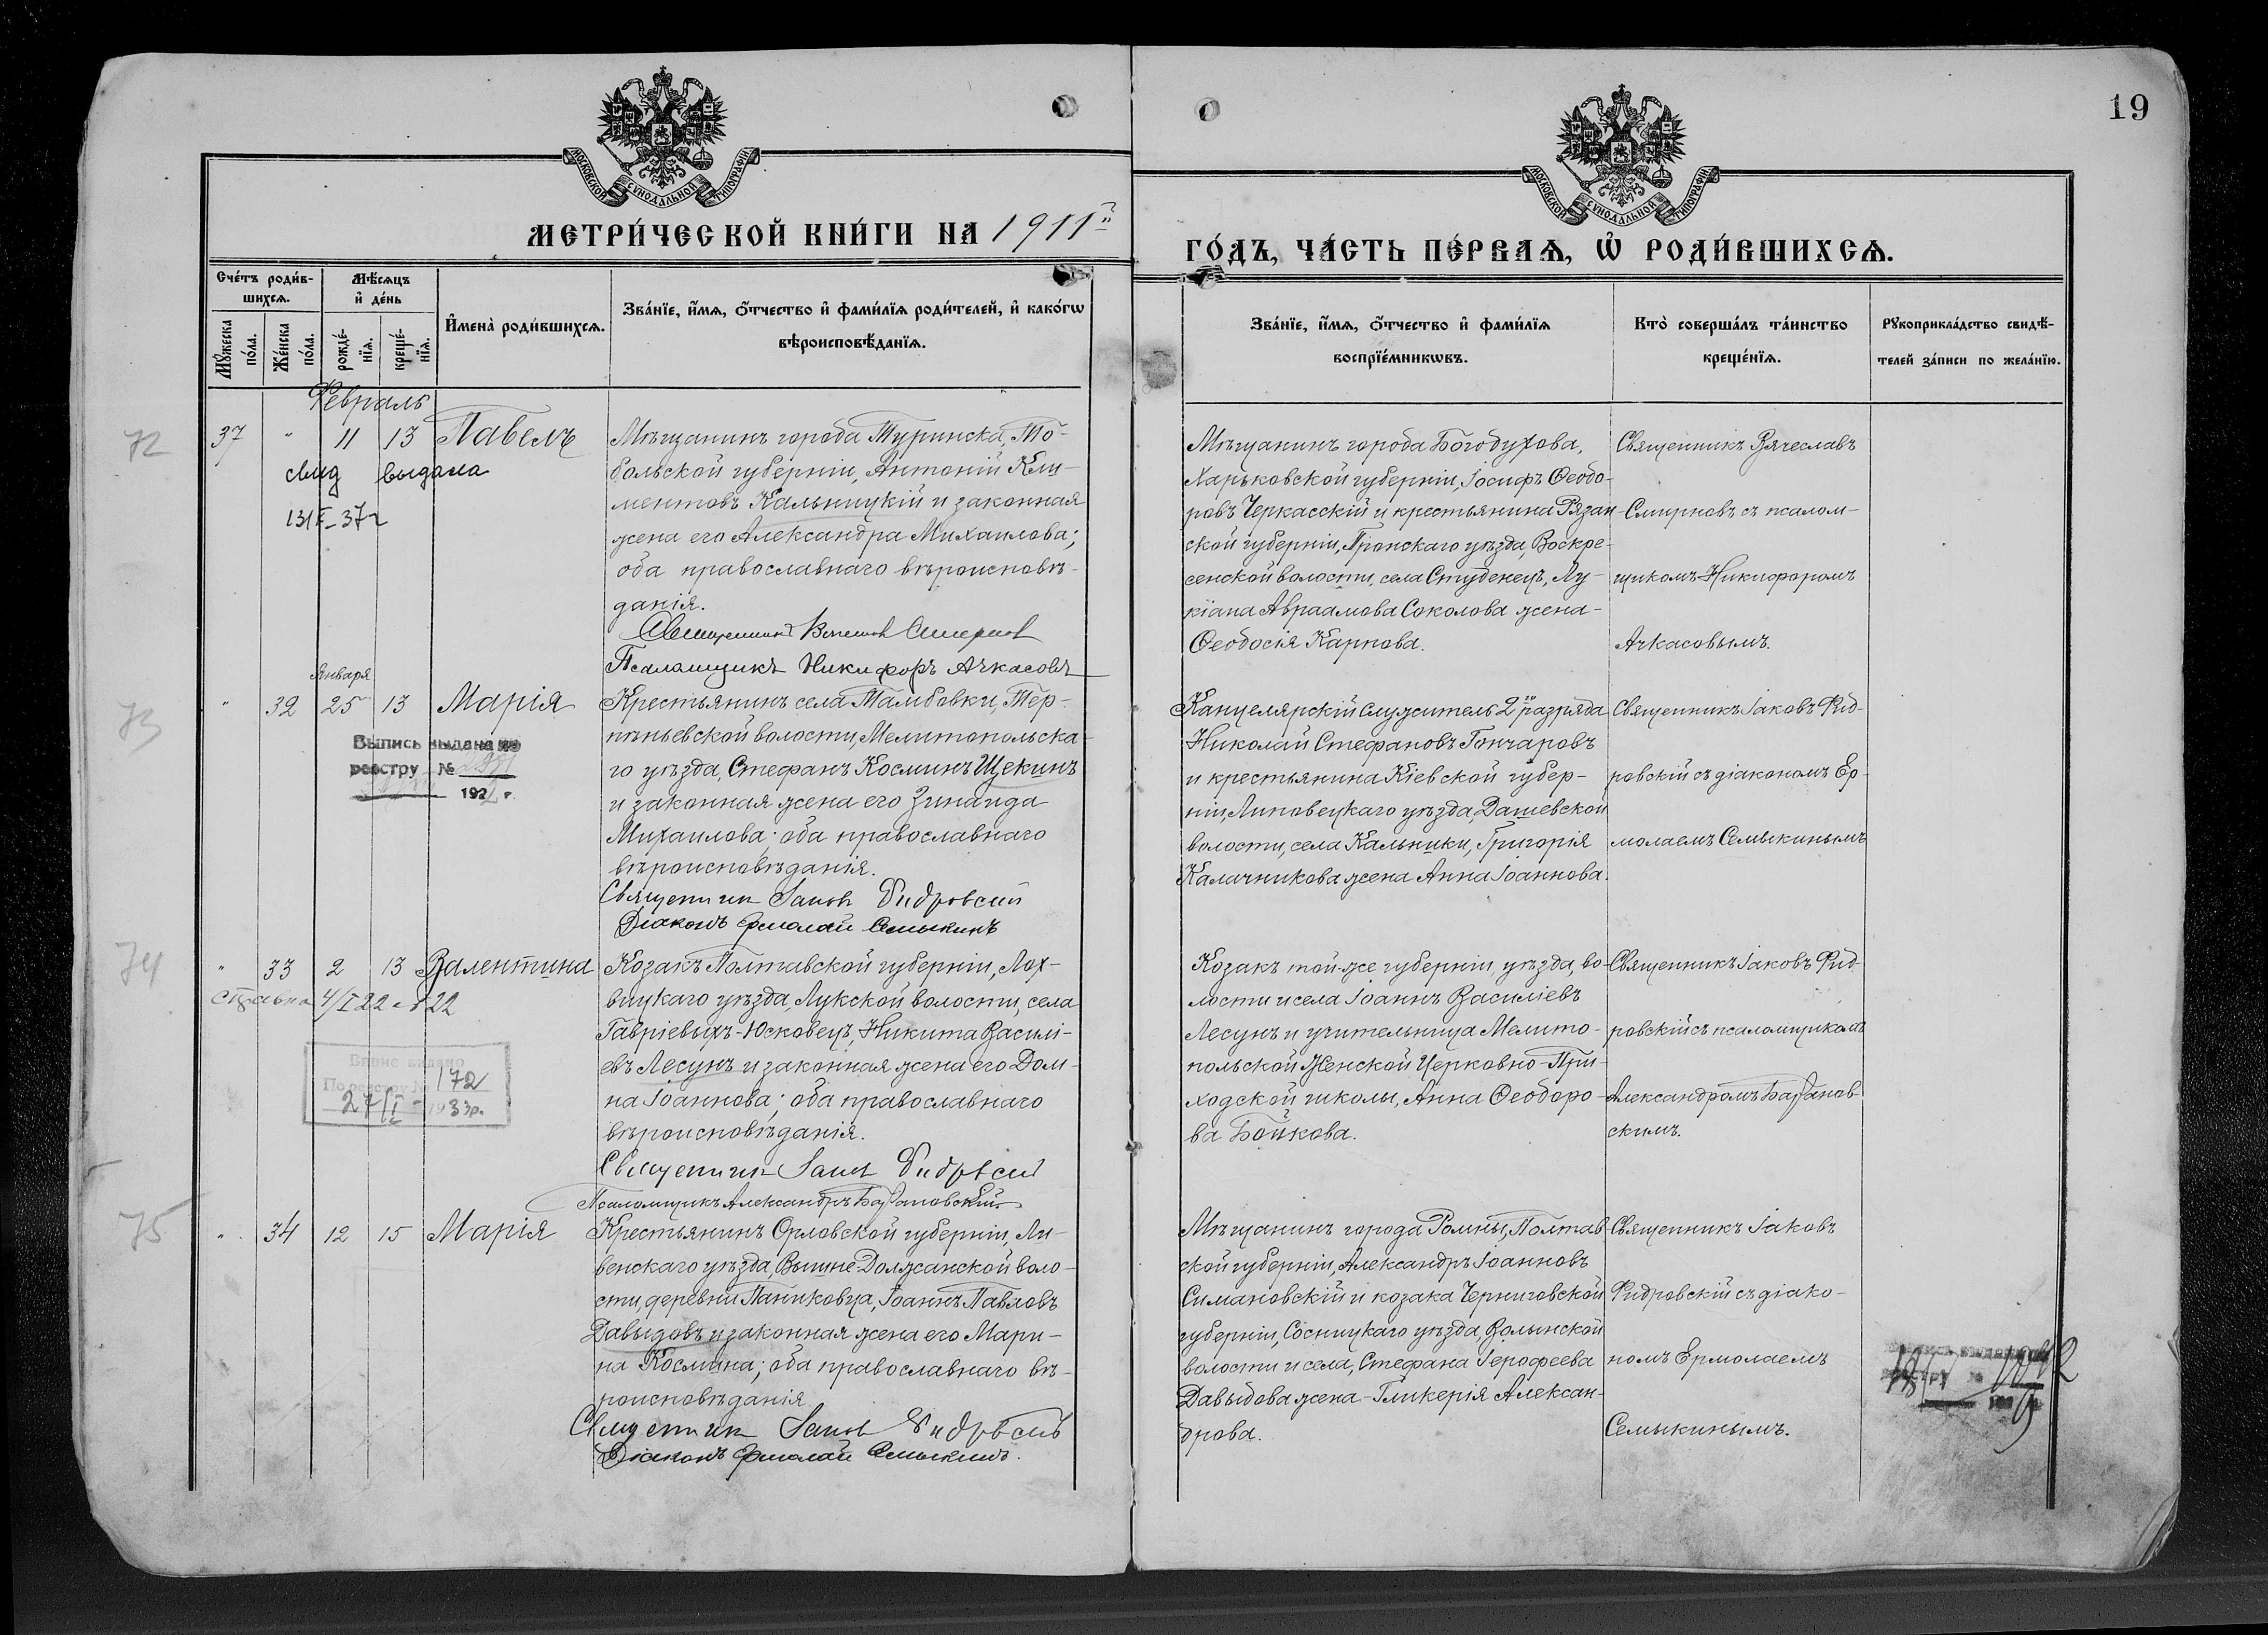 19
МОСКОВСКОЙ СУНОДАЛЬНОЙ ТИПОГРАФІИ
МОСКОВСКОЙ СУНОДАЛЬНОЙ ТИПОГРАФІИ
МЕТРИ́ЧЕСКОЙ КНИ́ГИ НА 1911 г.
ГО́ДЪ, ЧА́СТЬ ПЕ́РВАѦ, Ѡ҆ РОДИ́ВШИХСѦ.
Сче́тъ роди́в-
шихсѧ.
Мѣ́сѧцъ
и҆ де́нь
Мꙋ́жеска
по́ла.
Же́нска
по́ла.
рожде́-
нїѧ.
креще́-
нїѧ.
И҆мена̀ роди́вшихсѧ.
Зва́нїе, и҆́мѧ, ѻ҆́тчество и҆ фами́лїѧ роди́телей, и҆ како́гѡ
вѣроисповѣ́данїѧ.
Зва́нїе, и҆́мѧ, ѻ҆́тчество и҆ фами́лїѧ
воспрїе́мникѡвъ.
Кто̀ соверша́лъ та́инство
креще́нїѧ.
Рꙋкоприкла́дство свидѣ́-
телей за́писи по жела́нїю.
Февраль
72
37 " 11 13 Павелъ
свид выдана
13/I-37г
Мѣщанинъ города Туринска, То-
больской губерніи, Антоній Кли-
ментовъ Кальницкій и законная
жена его Александра Михаилова;
оба православнаго вѣроисповѣ-
данія.
Священникъ Вячеслав Смирнов
Псаломщикъ Никифоръ Ачкасовъ
Мѣщанинъ города Богодухова,
Харьковской губерніи, Іосифъ Ѳеодо-
ровъ Черкасскій и крестьянина Рязан-
ской губерніи, Пронскаго уѣзда, Воскре-
сенской волости, села Студенецъ, Лу-
кіана Авраамова Соколова жена-
Ѳеодосія Карпова.
Священникъ Вячеславъ
Смирновъ съ псалом-
щикомъ Никифоромъ
Ачкасовымъ.
Января
73
" 32 25 13 Марія
Выпись выдана по
реестру №
192 г.
Крестьянинъ села Тамбовки, Тер-
пѣньевской волости, Мелитопольска-
го уѣзда, Стефанъ Косминъ Щекинъ
и законная жена его Зинаида
Михаилова; оба православнаго
вѣроисповѣданія.
Священник Іаков Фидровский
Діаконъ Ермолай Семыкинъ
Канцелярскій служитель 2го разряда
Николай Стефановъ Гончаровъ
и крестьянина Кіевской губер-
ніи, Липовецкаго уѣзда, Дашевской
волости, села Кальники, Григорія
Калачникова жена Анна Іоаннова.
Священникъ Іаковъ Фид-
ровскій съ діакономъ Ер-
молаемъ Семыкинымъ
74
" 33 2 13 Валентина
справка 4/I 22 №22
По реестру № 172
27/I - 1933р.
Козакъ Полтавской губерніи, Лох-
вицкаго уѣзда, Лукской волости, села
Гавріевыхъ-Юсковецъ, Никита Василі-
евъ Лесунъ и законная жена его Дом-
на Іоаннова; оба православнаго
вѣроисповѣданія.
Священник Іаков Фидровский
Псаломщикъ Александръ Базановскій
Козакъ той-же губерніи, уѣзда, во-
лости и села Іоаннъ Василіевъ
Лесунъ и учительница Мелито-
польской Женской Церковно-При-
ходской школы, Анна Ѳеодоро-
ва Бойкова.
Священникъ Іаковъ Фид-
ровскій съ псаломщикомъ
Александромъ Базанов-
скимъ.
75
" 34 12 15 Марія
Крестьянинъ Орловской губерніи, Ли-
венскаго уѣзда, Вышне-Должанской воло-
сти, деревни Паниковца, Іоаннъ Павловъ
Давыдовъ и законная жена его Мари-
на Космина; оба православнаго вѣ-
роисповѣданія.
Священник Іаков Фидровский
Діаконъ Ермолай Семыкинъ.
Мѣщанинъ города Ромны, Полтав-
ской губерніи, Александръ Іоанновъ
Симановскій и козака Черниговской
губерніи, Сосницкаго уѣзда, Волынской
волости и села, Стефана Іерофеева
Давыдова жена-Гликерія Алексан-
дрова.
Священникъ Іаковъ
Фидровскій съ діако-
номъ Ермолаемъ
Семыкинымъ.